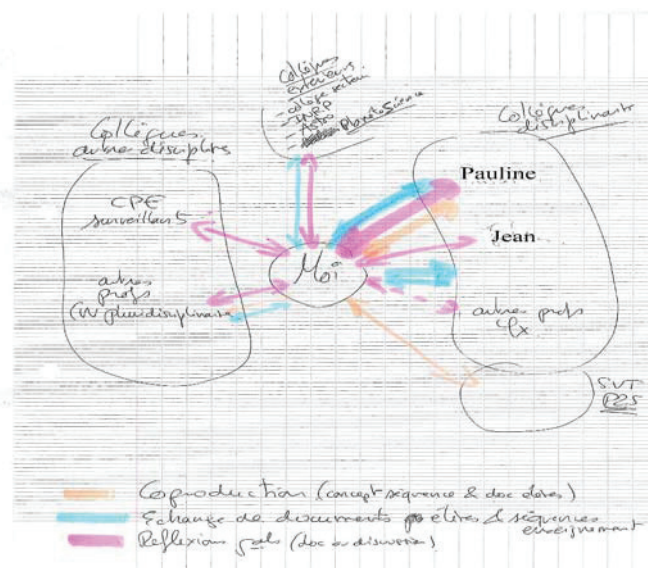 Collègues
extérieurs
- collège
- INRP
- Astro
- Planète Science
Collègues
autres disciplines
CPE
surveillants
autres
profs
pluridisciplinaire
Moi
Collègues
disciplinaire
Pauline
Jean
autres profs
SVT
Coproduction (concept séquence & doc élèves)
Echange de documents élèves & séquences
enseignement
Réflexions (doc ou discussion)